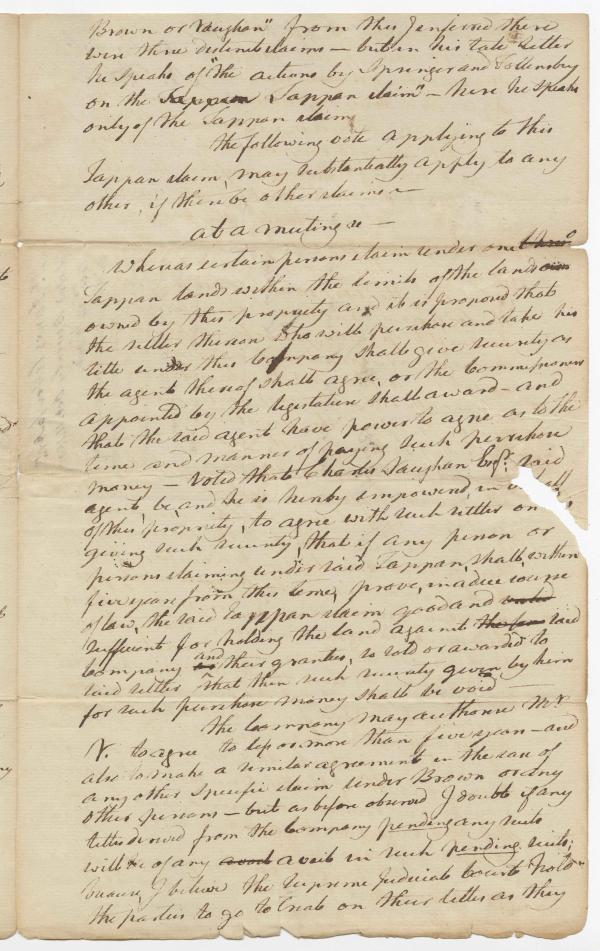 Brown or Vaughan" from this I inferred there
were three distinct claims – but in his late letter
he speaks of "the actions by Springer and Tallensbury
on the Tappan Tappan claim" – here he speaks
only of the Tappan claim
the following vote applying to this
Tappan claim, may substantially apply to any
other, if there be other claims –
at a meeting &c –
Whereas certain persons claim under one
Tappan lands within the limits of the lands
owned by this propriety and it is proposed that
the settler thereon who will purchase and take his
title under this Company shall give security as
the agent thereof shall agree, or the Commissioners
appointed by the legislature shall award – and
that the said agent have power to agree as to the
time and manner of paying such purchase
money – Voted that Charles Vaughan Esqr. said
agent, be, and he is hereby empowered, in behalf
of this propriety, to agree with such settler on
giving such security, that if any person or
persons claiming under said Tappan, shall, within
five years from this time, prove, in a due course
of law, the said Tappan claim good and valid
sufficient for holding the land against said
Company and their grantee, so sold or awarded to
said settler that then such security given by him
for such purchase money shall be void –
The Company may authorise Mr
V. to agree to less or more than five years – and
also to make a similar agreement in the case of
any other specific claim under Brown or any
other persons – but as before observed I doubt if any
titles derived from the Company pending any suits
will be of any avail in such pending suits;
because, I believe the Supreme Judicial Court hold
the parties to go to trial on their titles as they